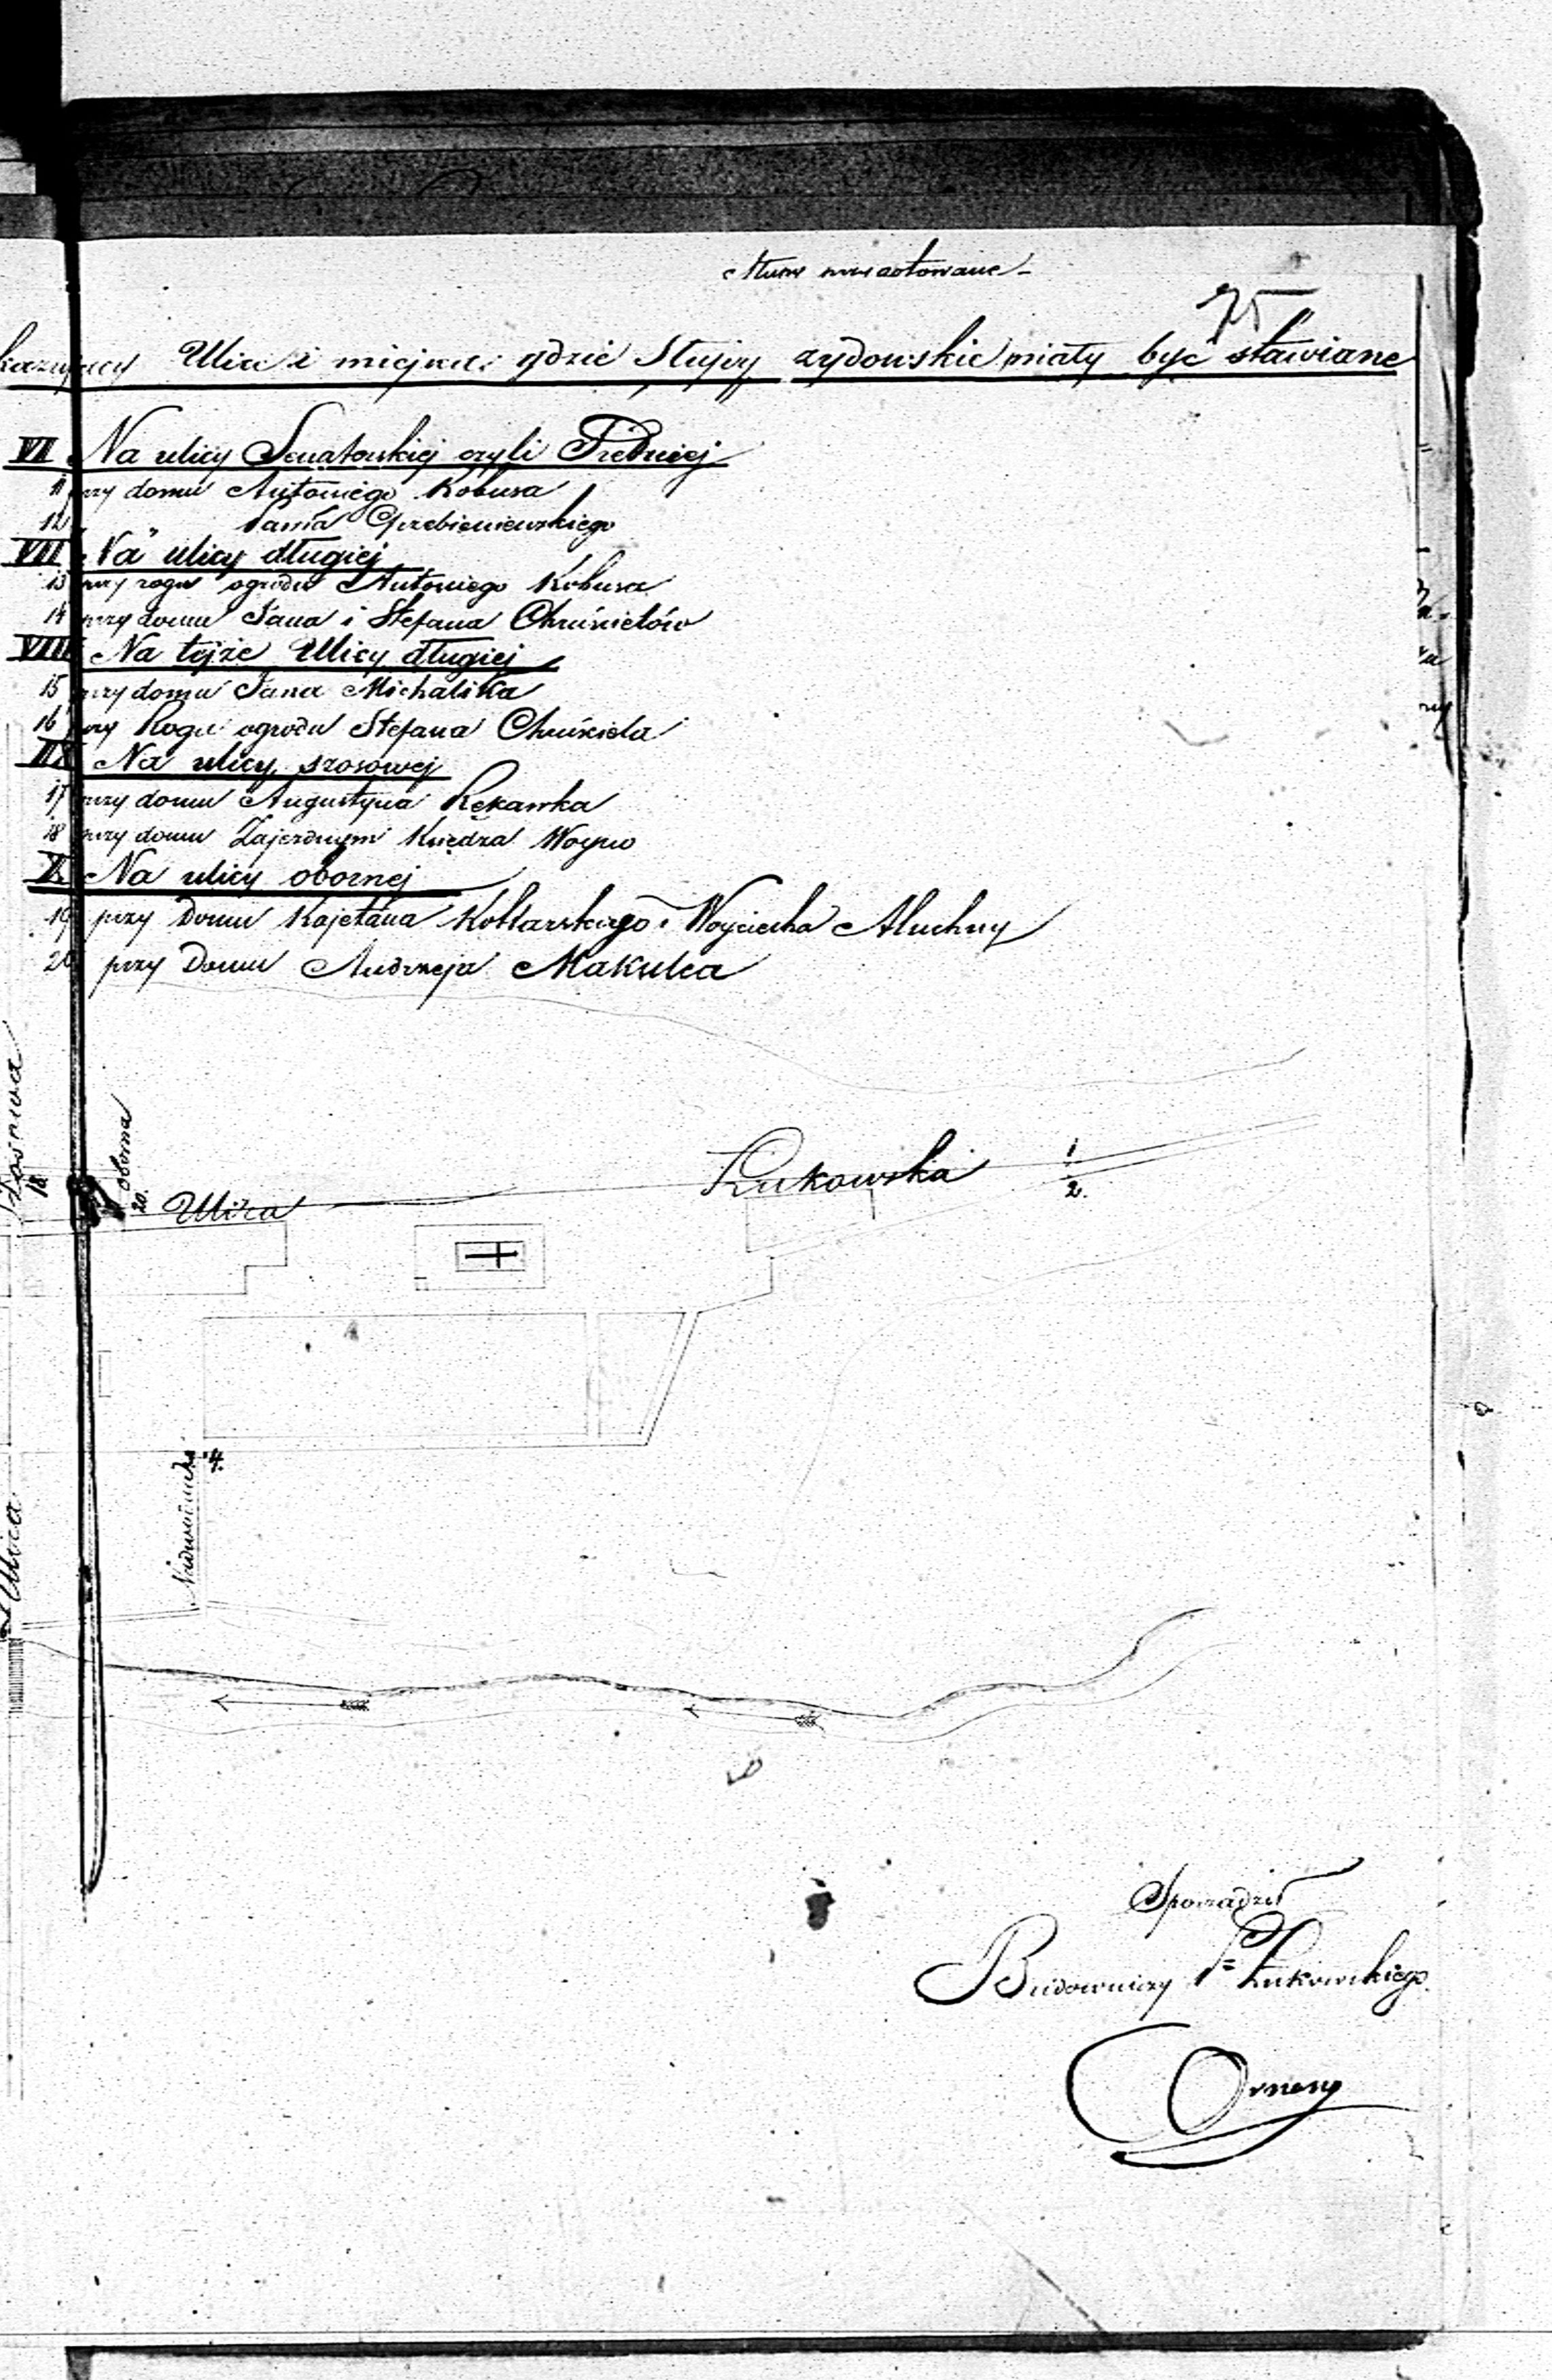 75
kazujący Ulice i miejsca gdzie Słupy żydowskie miały być stawiane
VI Na ulicy Senatorskiej czyli Średniej
11 przy domu Antoniego Kobusa
12 " Jana Grzebieniewskiego
VII Na ulicy długiej
13 przy rogu ogrodu Antoniego Kobusa
14 przy domu Jana i Stefana Chruścielów
VIII Na tejże Ulicy długiej
15 przy domu Jana Michalika
16 przy Rogu ogrodu Stefana Chruściela
IIX Na ulicy szosowej
17 przy domu Augustyna Rękawka
18 przy domu Zajezdnym Księdza Woyno
X Na ulicy obornej
19 przy Domu Kajetana Kotlarskiego i Woyciecha Muchny
20 przy Domu Andrzeja Makulca
18.
oborna
20.
Ulica
Łukowska
1.
2.
4.
Ulica
Sporządził
Budowniczy Ptu Łukowskiego